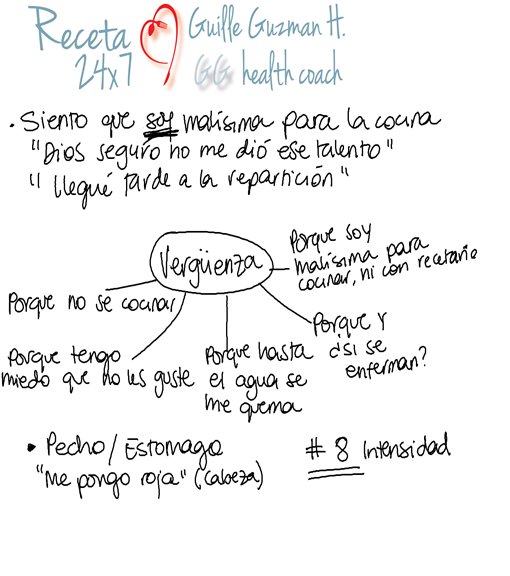 Receta
24x7
Guille Guzman H.
GG health coach
• Siento que soy malísima para la cocina
"Dios seguro no me dió ese talento"
"llegué tarde a la repartición"
Vergüenza
Porque soy
malísima para
cocinar, ni con recetario
Porque no se cocinar
Porque Y
¿si se
enferman?
Porque tengo
miedo que no les guste
Porque hasta
el agua se
me quema
• Pecho / Estomago
"Me pongo roja" (Cabeza)
# 8 Intensidad